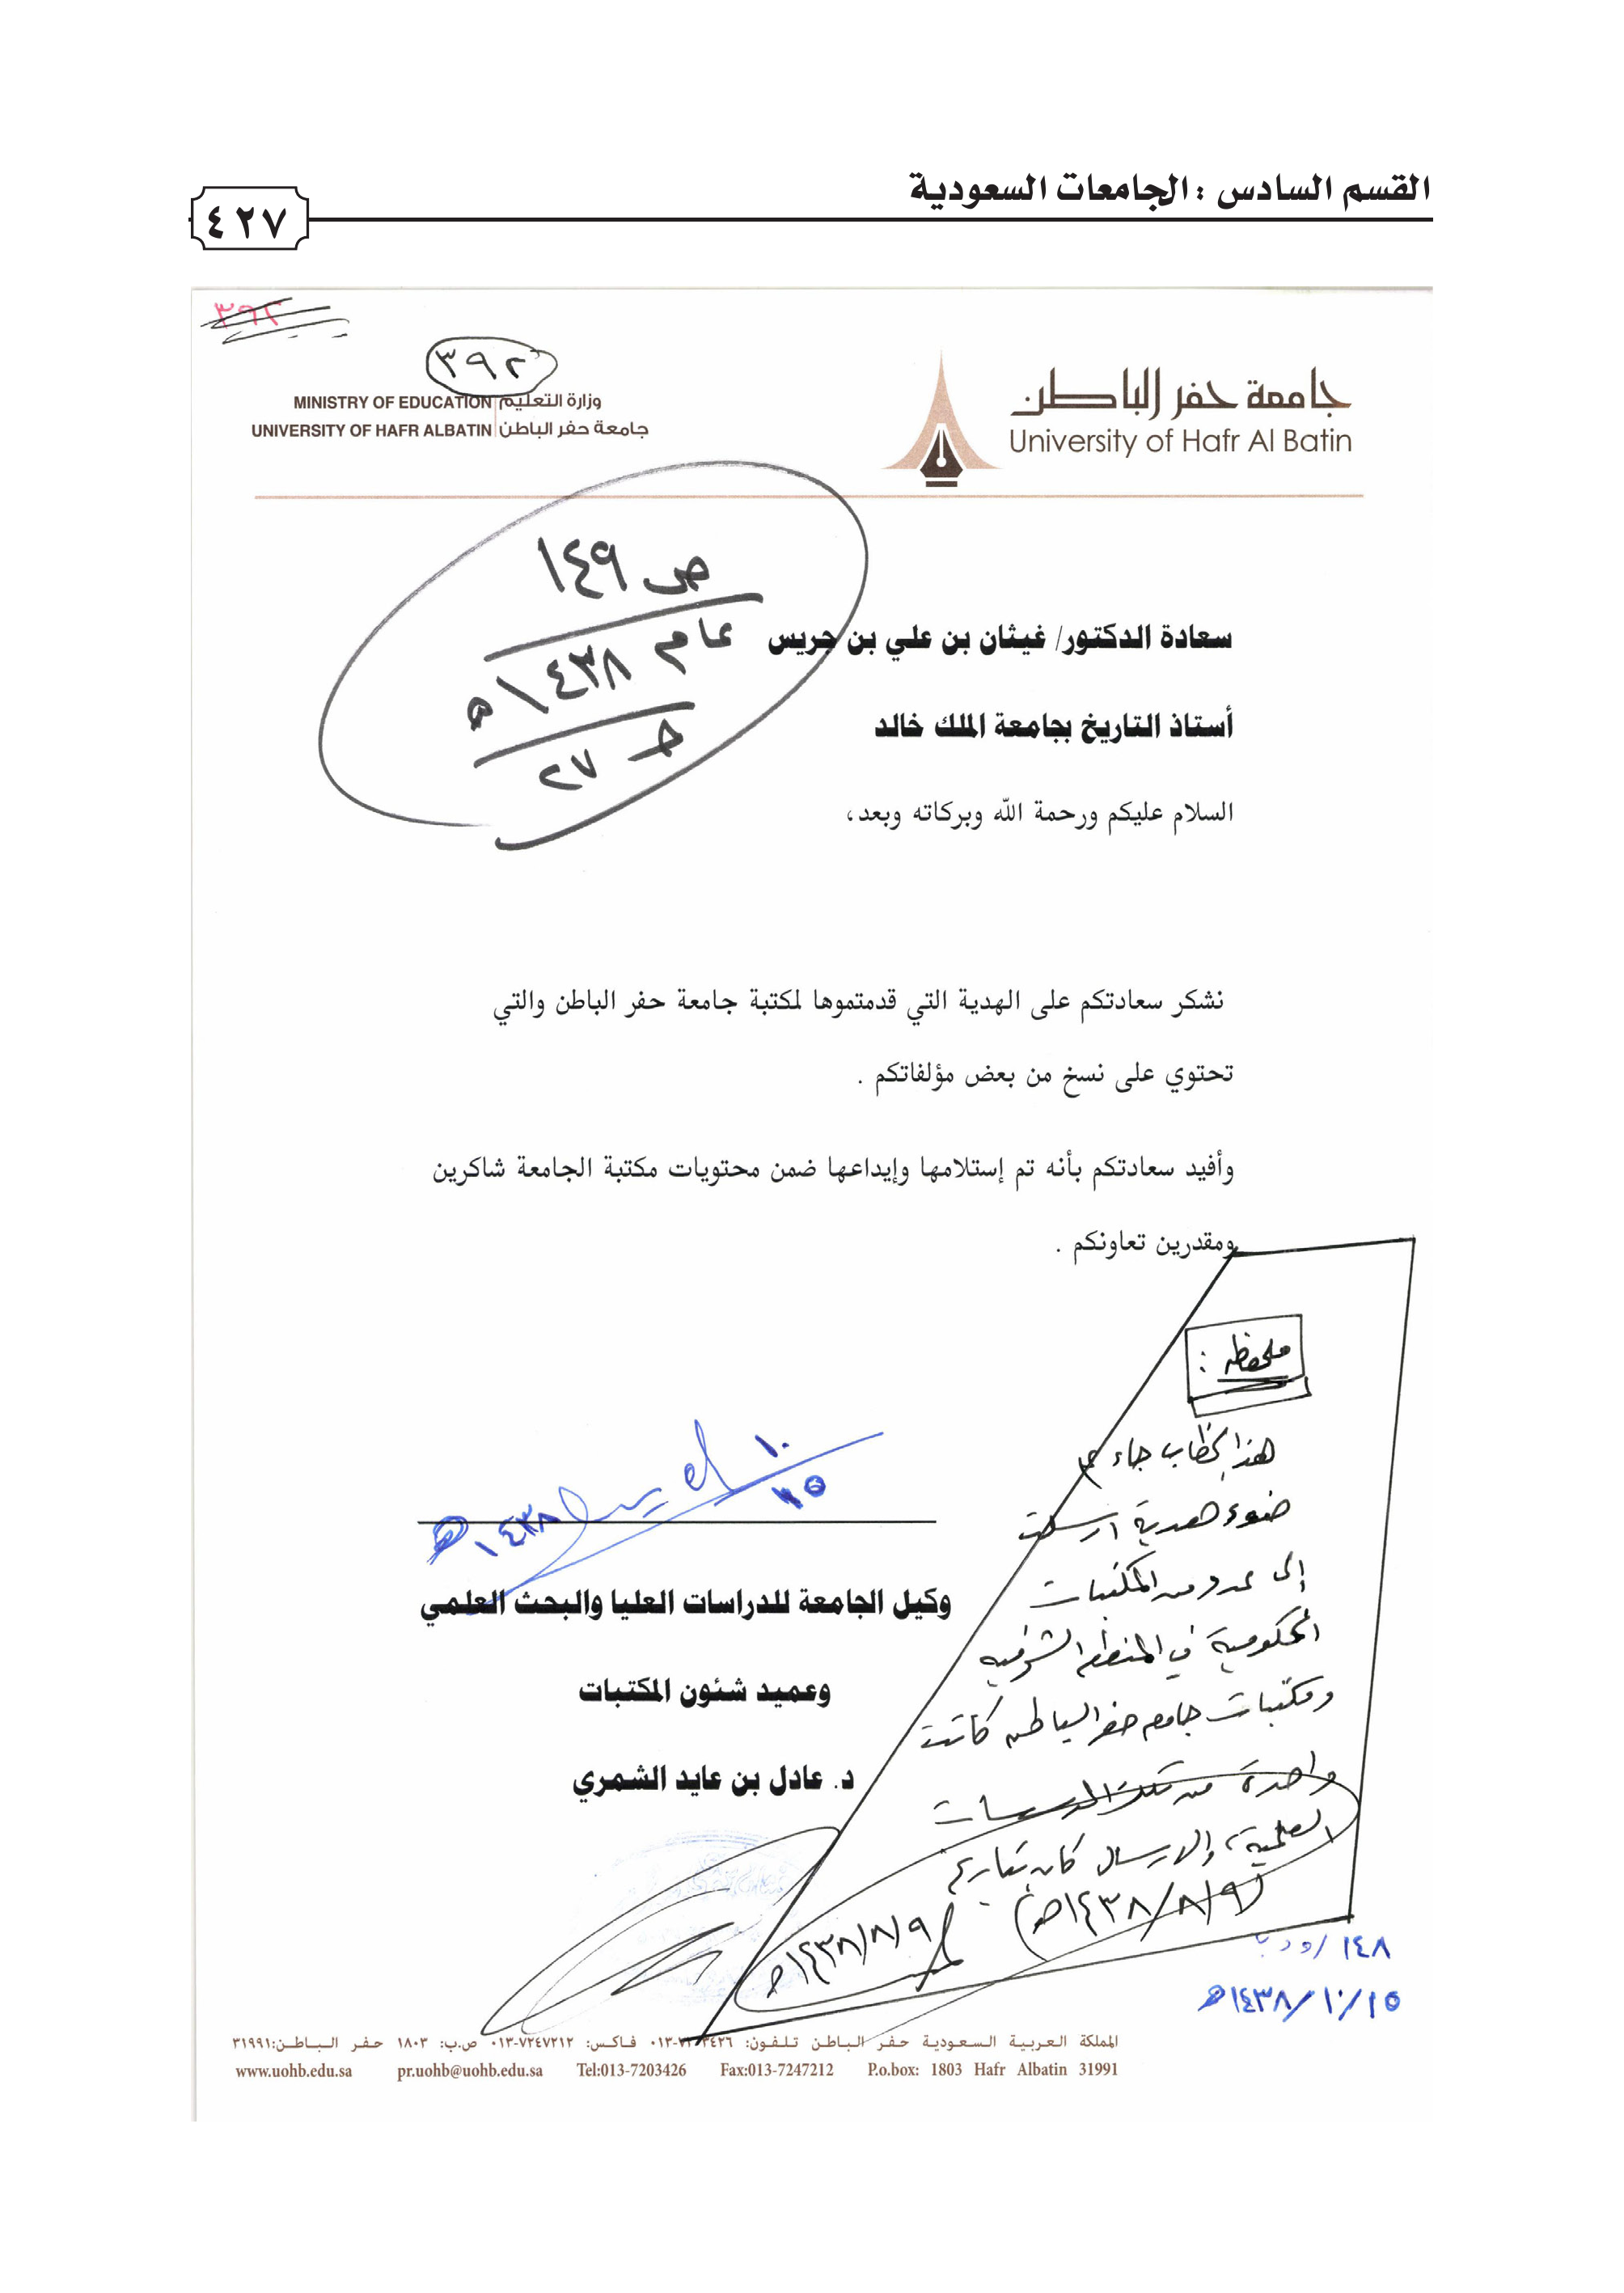 القسم السادس : الجامعات السعودية
٤٢٧
٣٩٢
٣٩٢
جامعة حفر الباطن
University of Hafr Al Batin
MINISTRY OF EDUCATION وزارة التعليم
UNIVERSITY OF HAFR ALBATIN جامعة حفر الباطن
ص ١٤٩
عام ١٤٣٨هـ
حـ ٢٧
سعادة الدكتور/ غيثان بن علي بن جريس
أستاذ التاريخ بجامعة الملك خالد
السلام عليكم ورحمة الله وبركاته وبعد،
نشكر سعادتكم على الهدية التي قدمتموها لمكتبة جامعة حفر الباطن والتي
تحتوي على نسخ من بعض مؤلفاتكم .
وأفيد سعادتكم بأنه تم إستلامها وإيداعها ضمن محتويات مكتبة الجامعة شاكرين
ومقدرين تعاونكم .
١٠
١٥
١٤٣٨هـ
وكيل الجامعة للدراسات العليا والبحث العلمي
وعميد شئون المكتبات
د. عادل بن عايد الشمري
ملحوظة :
هذا الخطاب جاء
ضوء هدية ارسلت
إلى عدد من المكتبات
الحكومية في المنطقة الشرقية
ومكتبات جامعة حفر الباطن كانت
واحدة من تلك المؤسسات
العلمية، والارسال كان بتاريخ
(١٤٣٨/٨/٩هـ)
١٤٣٨/٨/٩هـ
١٤٨
١٤٣٨/١٠/١٥هـ
المملكة العربية السعودية حفر الباطن تلفون: ٧٢٠٣٤٢٦-٠١٣ فاكس: ٧٢٤٧٢١٢-٠١٣ ص.ب: ١٨٠٣ حفر الباطن:٣١٩٩١
www.uohb.edu.sa pr.uohb@uohb.edu.sa Tel:013-7203426 Fax:013-7247212 P.o.box: 1803 Hafr Albatin 31991